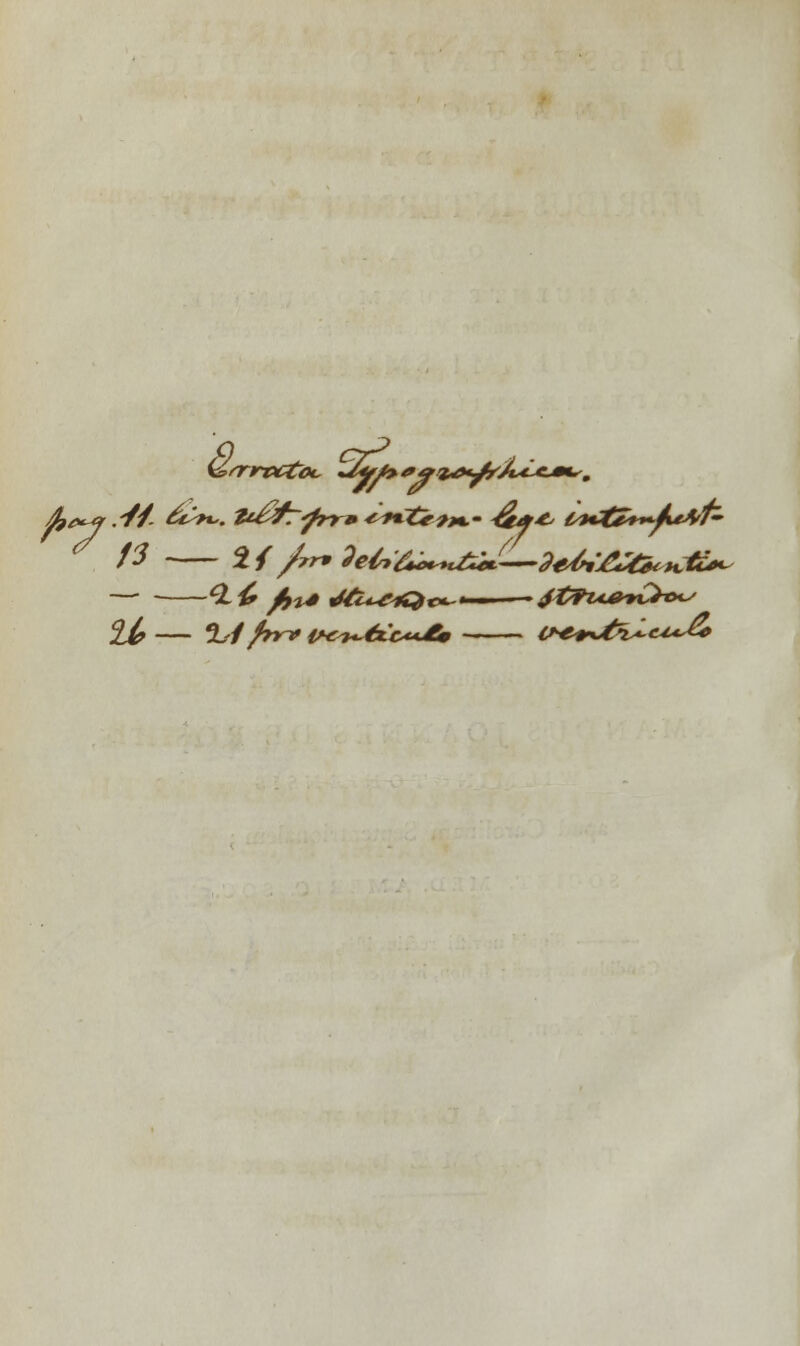 Errata Typographica.
pag. 11. lin. ult. pro intem- lege intempest-
13 —— 21 pro debiliantia —— debilitantia
— —— 26 pro stuenda —— struenda
26 — 21 pro venticulo —— ventriculo